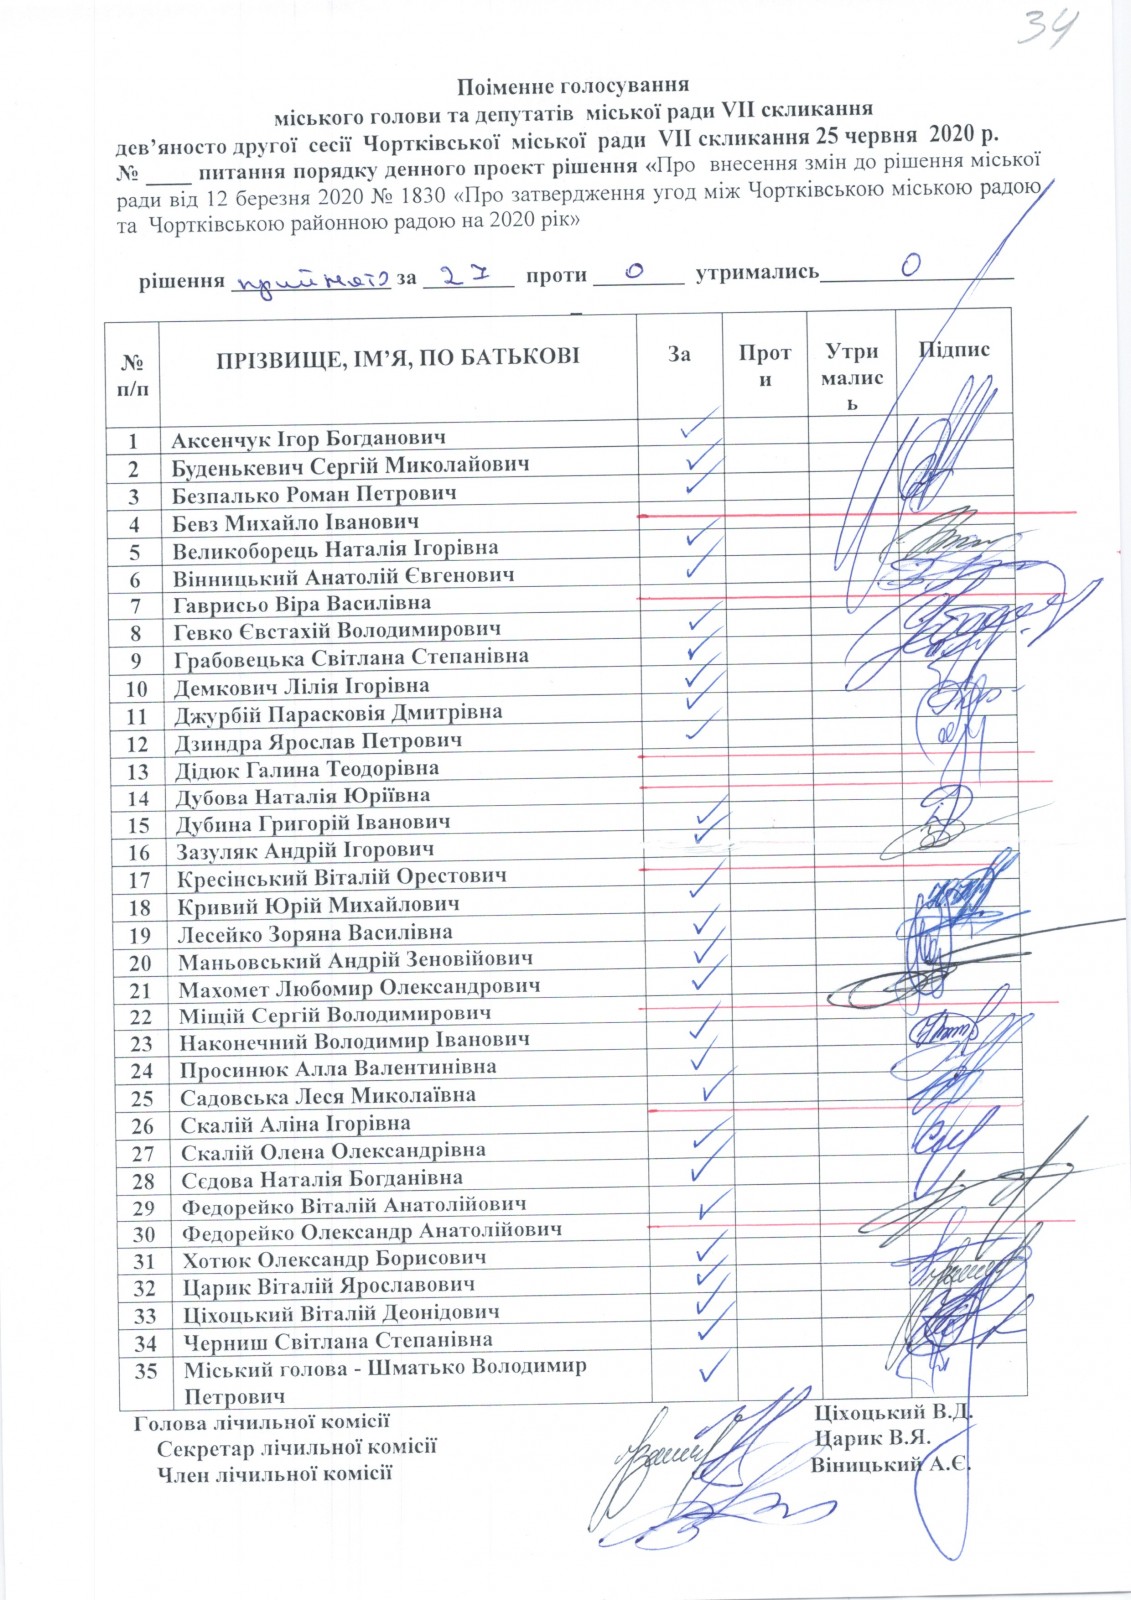 34
Поіменне голосування
міського голови та депутатів міської ради VII скликання
дев’яносто другої сесії Чортківської міської ради VII скликання 25 червня 2020 р.
№ ____ питання порядку денного проект рішення «Про внесення змін до рішення міської
ради від 12 березня 2020 № 1830 «Про затвердження угод між Чортківською міською радою
та Чортківською районною радою на 2020 рік»
рішення прийнято за 27 проти 0 утримались 0
№ п/п ПРІЗВИЩЕ, ІМ’Я, ПО БАТЬКОВІ За Проти Утримались Підпис
1 Аксенчук Ігор Богданович ✓
2 Буденькевич Сергій Миколайович ✓
3 Безпалько Роман Петрович ✓
4 Бевз Михайло Іванович
5 Великоборець Наталія Ігорівна ✓
6 Вінницький Анатолій Євгенович ✓
7 Гаврисьо Віра Василівна
8 Гевко Євстахій Володимирович ✓
9 Грабовецька Світлана Степанівна ✓
10 Демкович Лілія Ігорівна ✓
11 Джурбій Парасковія Дмитрівна ✓
12 Дзиндра Ярослав Петрович ✓
13 Дідюк Галина Теодорівна
14 Дубова Наталія Юріївна
15 Дубина Григорій Іванович ✓
16 Зазуляк Андрій Ігорович ✓
17 Кресінський Віталій Орестович
18 Кривий Юрій Михайлович ✓
19 Лесейко Зоряна Василівна ✓
20 Маньовський Андрій Зеновійович ✓
21 Махомет Любомир Олександрович ✓
22 Міщій Сергій Володимирович
23 Наконечний Володимир Іванович ✓
24 Просинюк Алла Валентинівна ✓
25 Садовська Леся Миколаївна ✓
26 Скалій Аліна Ігорівна
27 Скалій Олена Олександрівна ✓
28 Сєдова Наталія Богданівна ✓
29 Федорейко Віталій Анатолійович ✓
30 Федорейко Олександр Анатолійович
31 Хотюк Олександр Борисович ✓
32 Царик Віталій Ярославович ✓
33 Ціхоцький Віталій Деонідович ✓
34 Черниш Світлана Степанівна ✓
35 Міський голова - Шматько Володимир
Петрович ✓
Голова лічильної комісії Ціхоцький В.Д.
Секретар лічильної комісії Царик В.Я.
Член лічильної комісії Віницький А.Є.